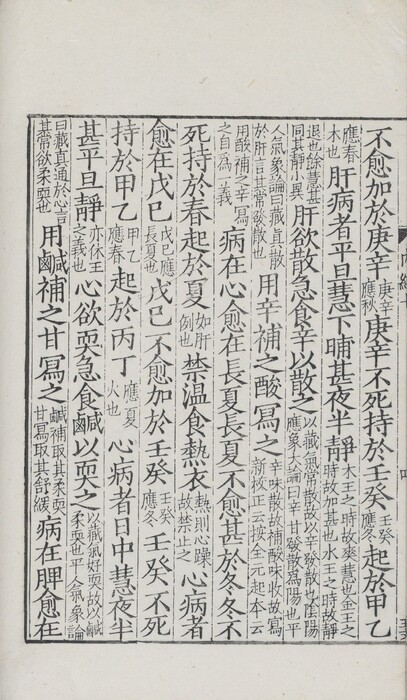 不愈加於庚辛庚辛應秋庚辛不死持於壬癸壬癸應冬起於甲乙
應春木也肝病者平旦慧下晡甚夜半靜木王之時故爽慧也金王之時故加甚也水王之時故靜
退也餘慧甚同其靜小異肝欲散急食辛以散之以藏氣常散故以辛發散也陰陽應象大論曰辛甘發散為陽也平
人氣象論曰藏真散於肝言其常發散也用辛補之酸寫之辛味散故補酸味收故寫新校正云按全元起本云
用酸補之辛寫之自為一義病在心愈在長夏長夏不愈甚於冬冬不
死持於春起於夏如肝例也禁溫食熱衣熱則心躁故禁止之心病者
愈在戊己戊己應長夏也戊己不愈加於壬癸壬癸應冬壬癸不死
持於甲乙甲乙應春起於丙丁應夏火也心病者日中慧夜半
甚平旦靜亦休王之義也心欲耎急食鹹以耎之以藏氣好耎故以鹹柔耎也平人氣象論
曰藏真通於心言其常欲柔耎也用鹹補之甘寫之鹹補取其柔耎甘寫取其舒緩病在脾愈在